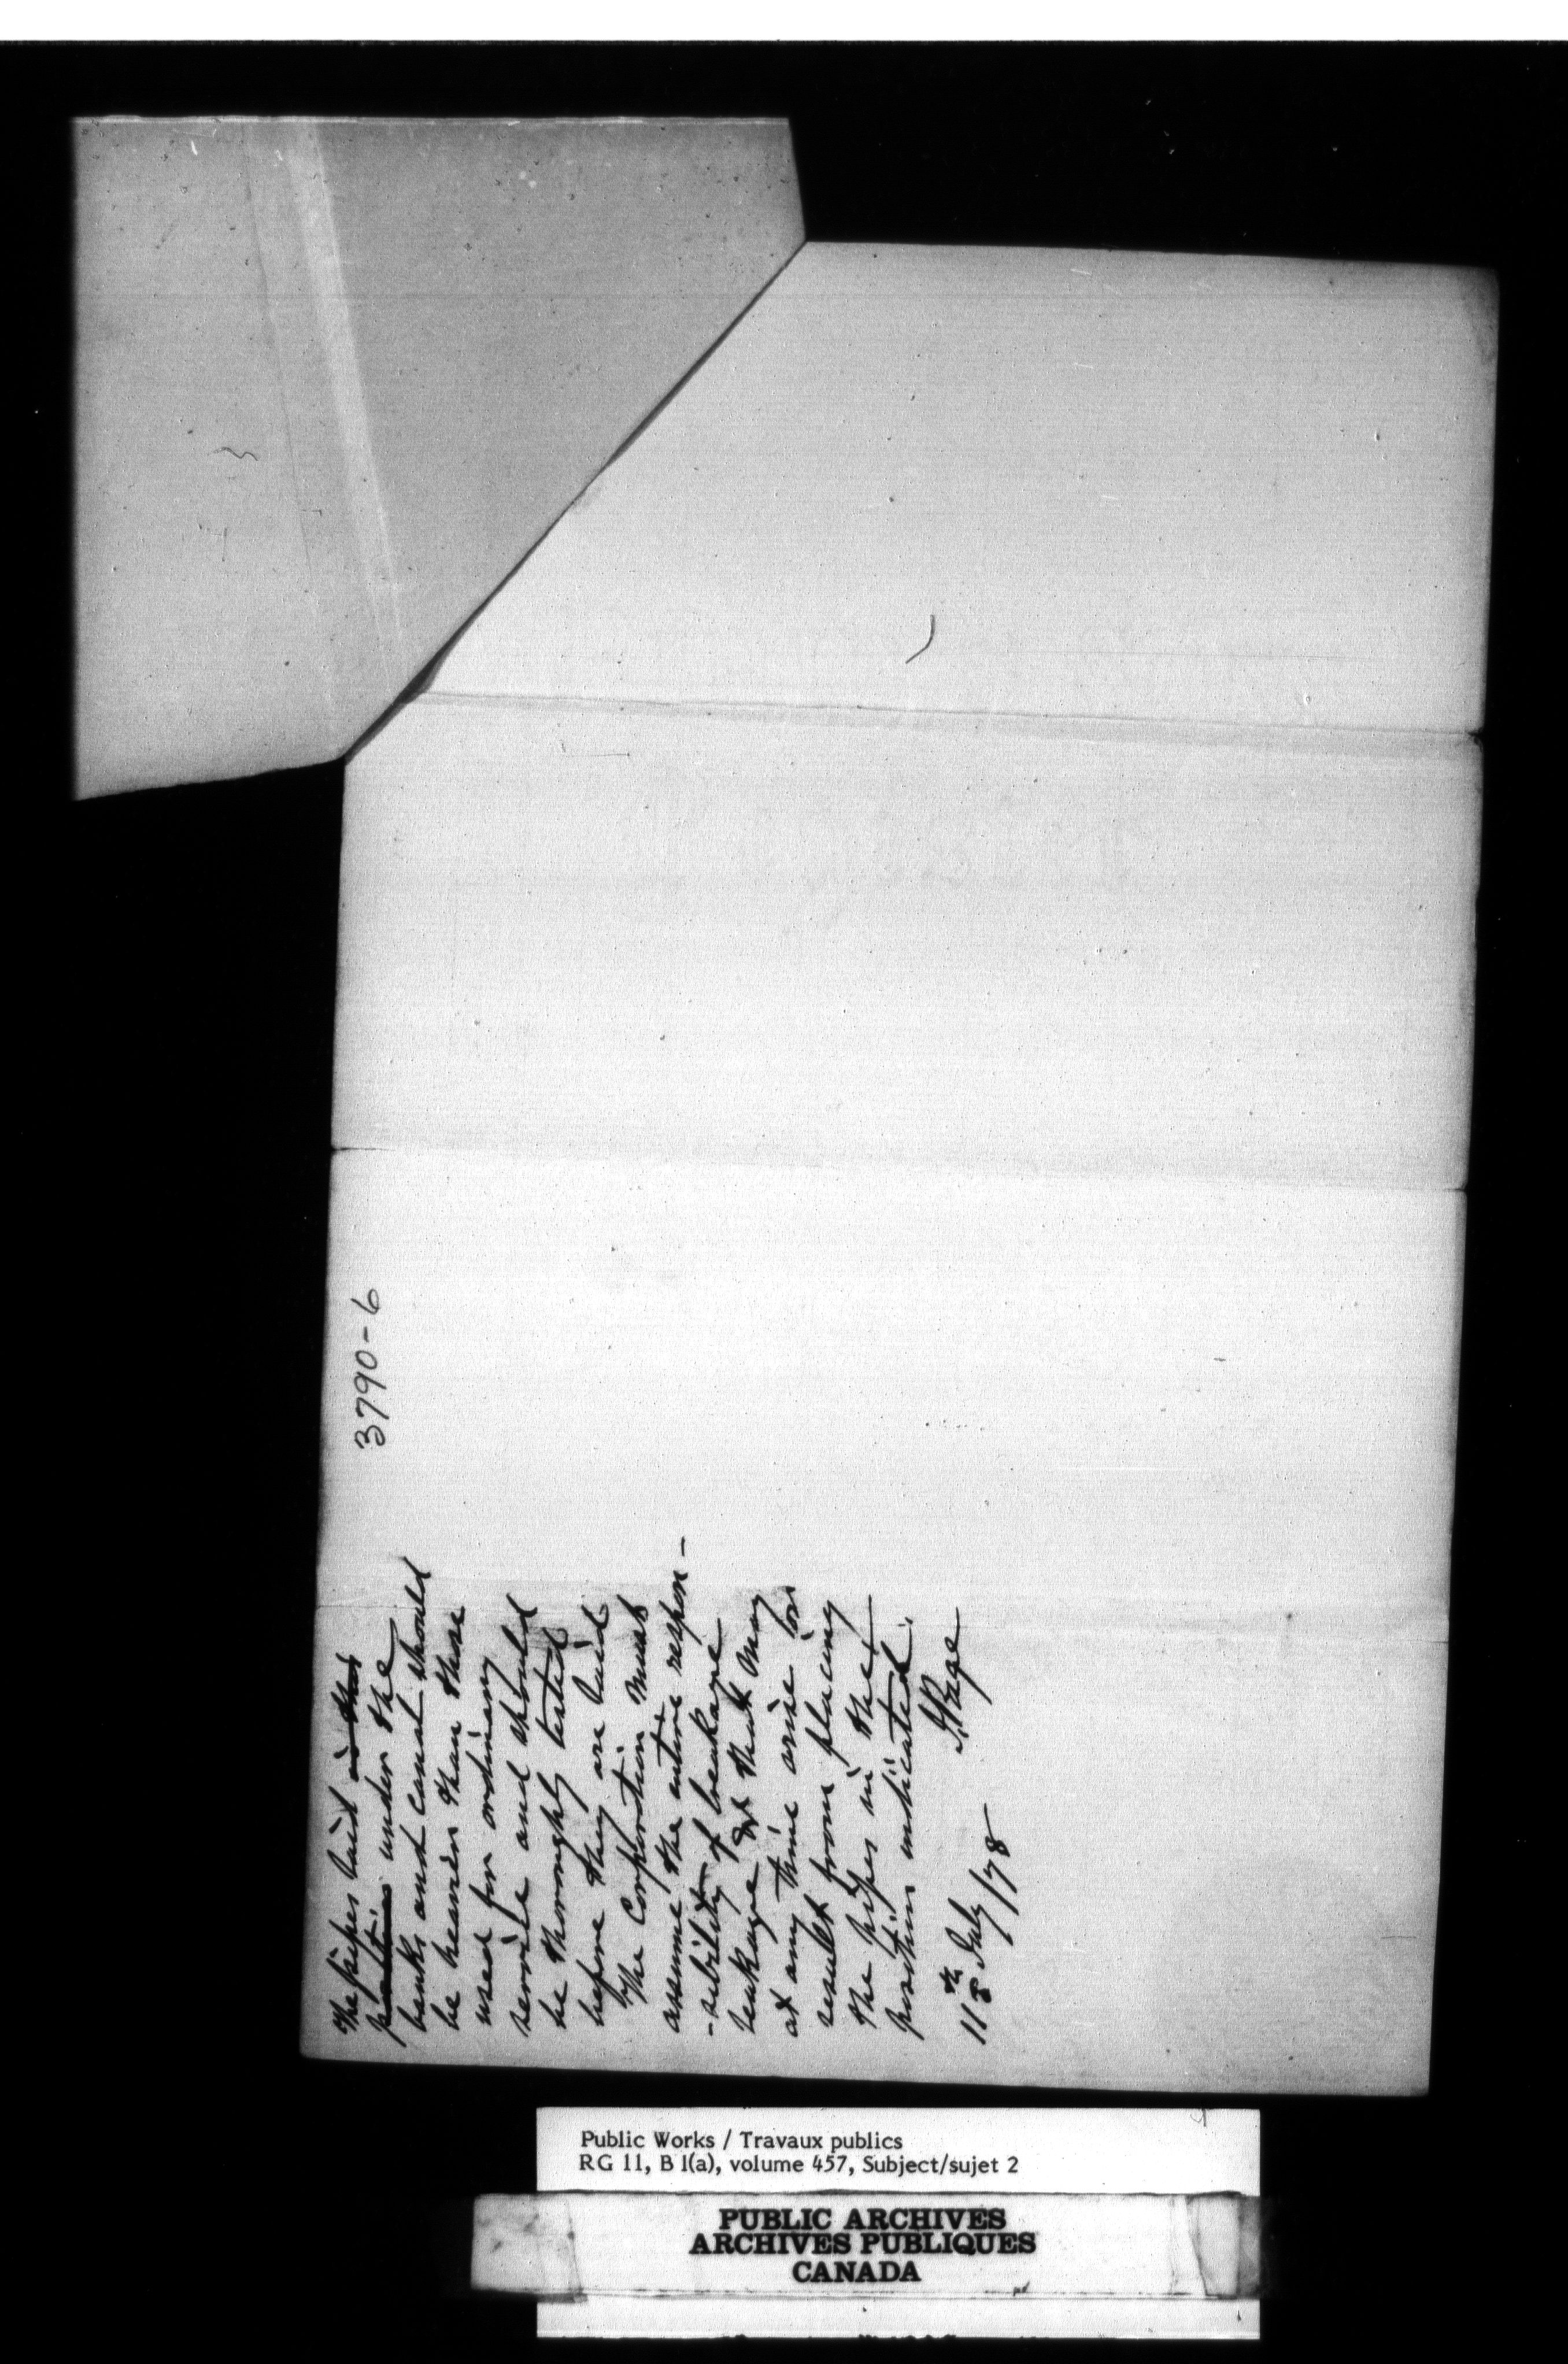 3790-6
The pipes laid in this
position under the
banks and canal should
be heavier than those
used for ordinary
service and should
be thoroughly tested
before they are laid
The Corporation must
assume the entire respon-
-sibility of breakage
leakage that may
at any time arise or
result from placing
the pipes in the
position indicated.
J. Page
11th July /78
Public Works / Travaux publics
RG 11, B 1(a), volume 457, Subject/sujet 2
PUBLIC ARCHIVES
ARCHIVES PUBLIQUES
CANADA